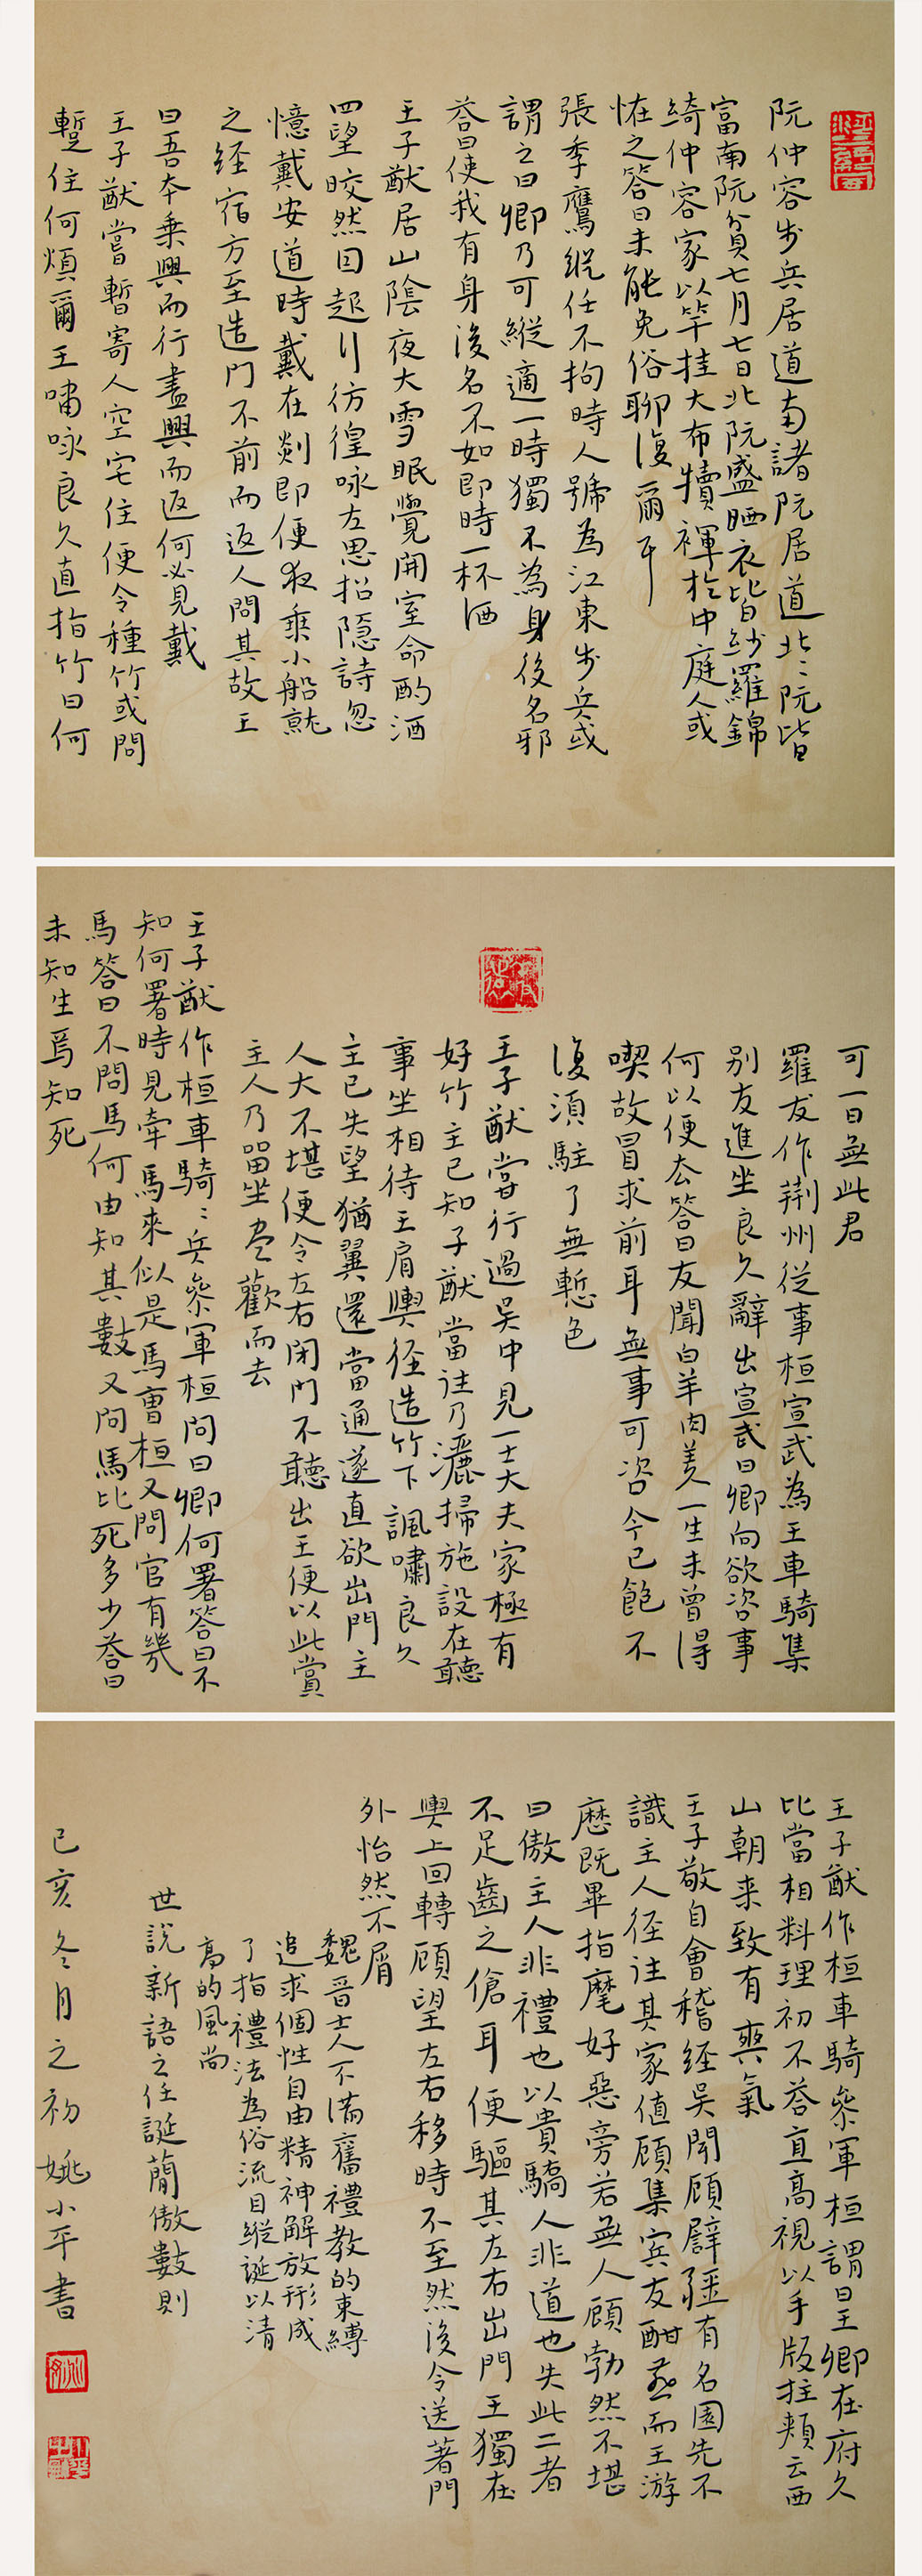 阮仲容步兵居道南諸阮居道北〻阮皆
富南阮貧七月七日北阮盛晒衣皆紗羅錦
綺仲容家以竿挂大布犢褌於中庭人或
恠之答曰未能免俗聊復爾耳
張季鷹縱任不拘時人號為江東步兵或
謂之曰卿乃可縱適一時獨不為身後名邪
荅曰使我有身後名不如即時一杯酒
王子猷居山陰夜大雪眠覺開室命酌酒
四望皎然因起行彷徨咏左思招隱詩忽
憶戴安道時戴在剡即便夜乗小船就
之經宿方至造門不前而返人問其故王
曰吾本乗興而行盡興而返何必見戴
王子猷嘗暫寄人空宅住便令種竹或問
蹔住何煩爾王嘯咏良久直指竹曰何
可一日無此君
羅友作荆州從事桓宣武為王車騎集
别友進坐良久辭出宣武曰卿向欲咨事
何以便去答曰友聞白羊肉美一生未曾得
喫故冒求前耳無事可咨今已飽不
復須駐了無慙色
王子猷嘗行過吴中見一士大夫家極有
好竹主已知子猷當往乃灑掃施設在聽
事坐相待王肩輿径造竹下諷嘯良久
主已失望猶冀還當通遂直欲出門主
人大不堪便令左右閉門不聽出王便以此賞
主人乃留坐盡歡而去
王子猷作桓車騎〻兵叅軍桓問曰卿何署答曰不
知何署時見牽馬來似是馬曹桓又問官有幾
馬答曰不問馬何由知其數又问馬比死多少荅曰
未知生焉知死
王子猷作桓車騎叅軍桓謂曰王卿在府久
比當相料理初不荅直高視以手版拄頰云西
山朝来致有爽氣
王子敬自會稽經吴聞顧辟疆有名園先不
識主人径往其家值顧集賓友酣燕而王游
歷既畢指麾好惡旁若無人顧勃然不堪
曰傲主人非禮也以貴驕人非道也失此二者
不足齒之傖耳便驅其左右出門王獨在
輿上回轉顧望左右移時不至然後令送著門
外怡然不屑
魏晋士人不滿舊禮教的束縛
追求個性自由精神解放形成
了指禮法為俗流目縱誕以清
高的風尚
世説新語之任誕簡傲數則
己亥冬月之初姚小平書